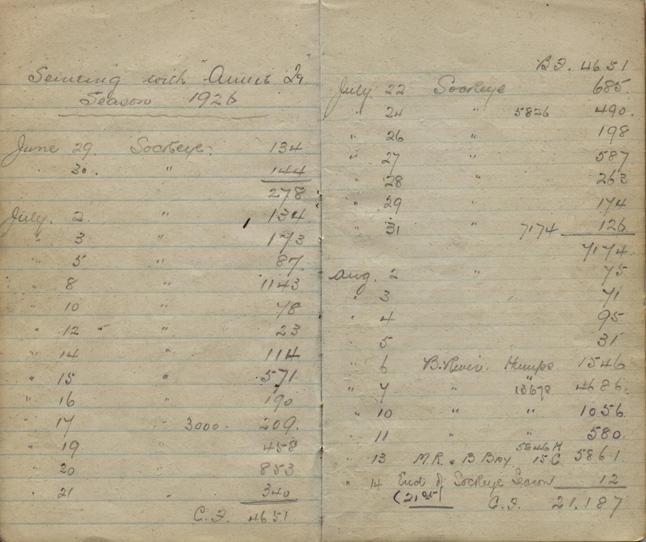 Seining with "Annie 2"
Season 1926
June 29 Sockeye. 134
" 30. " 144
278
July. 2 " 134
" 3 " 173
" 5 " 87
" 8 " 1143
" 10 " 78
" 12 " 23
" 14 " 114
" 15 " 571
" 16 " 190
" 17 " 3000. 209.
" 19 " 458
" 20 " 853
" 21 " 340
C.F. 4651
B.F. 4651
July 22 Sockeye 685.
" 24 " 5826 490.
" 26 " 198
" 27 " 587
" 28 " 263
" 29 " 174
" 31 " 7174 126
7174.
Aug. 2 " 75
" 3 " 71
" 4 95
" 5 31
" 6 B. River. Humps 1546
" 7 " " 4686.
" 10 " " 1056.
" 11 " 580
5846 H
" 13 M.R. & B Bay 15 C 5861
" 14 End of Sockeye Season 12
C.F. 21.187